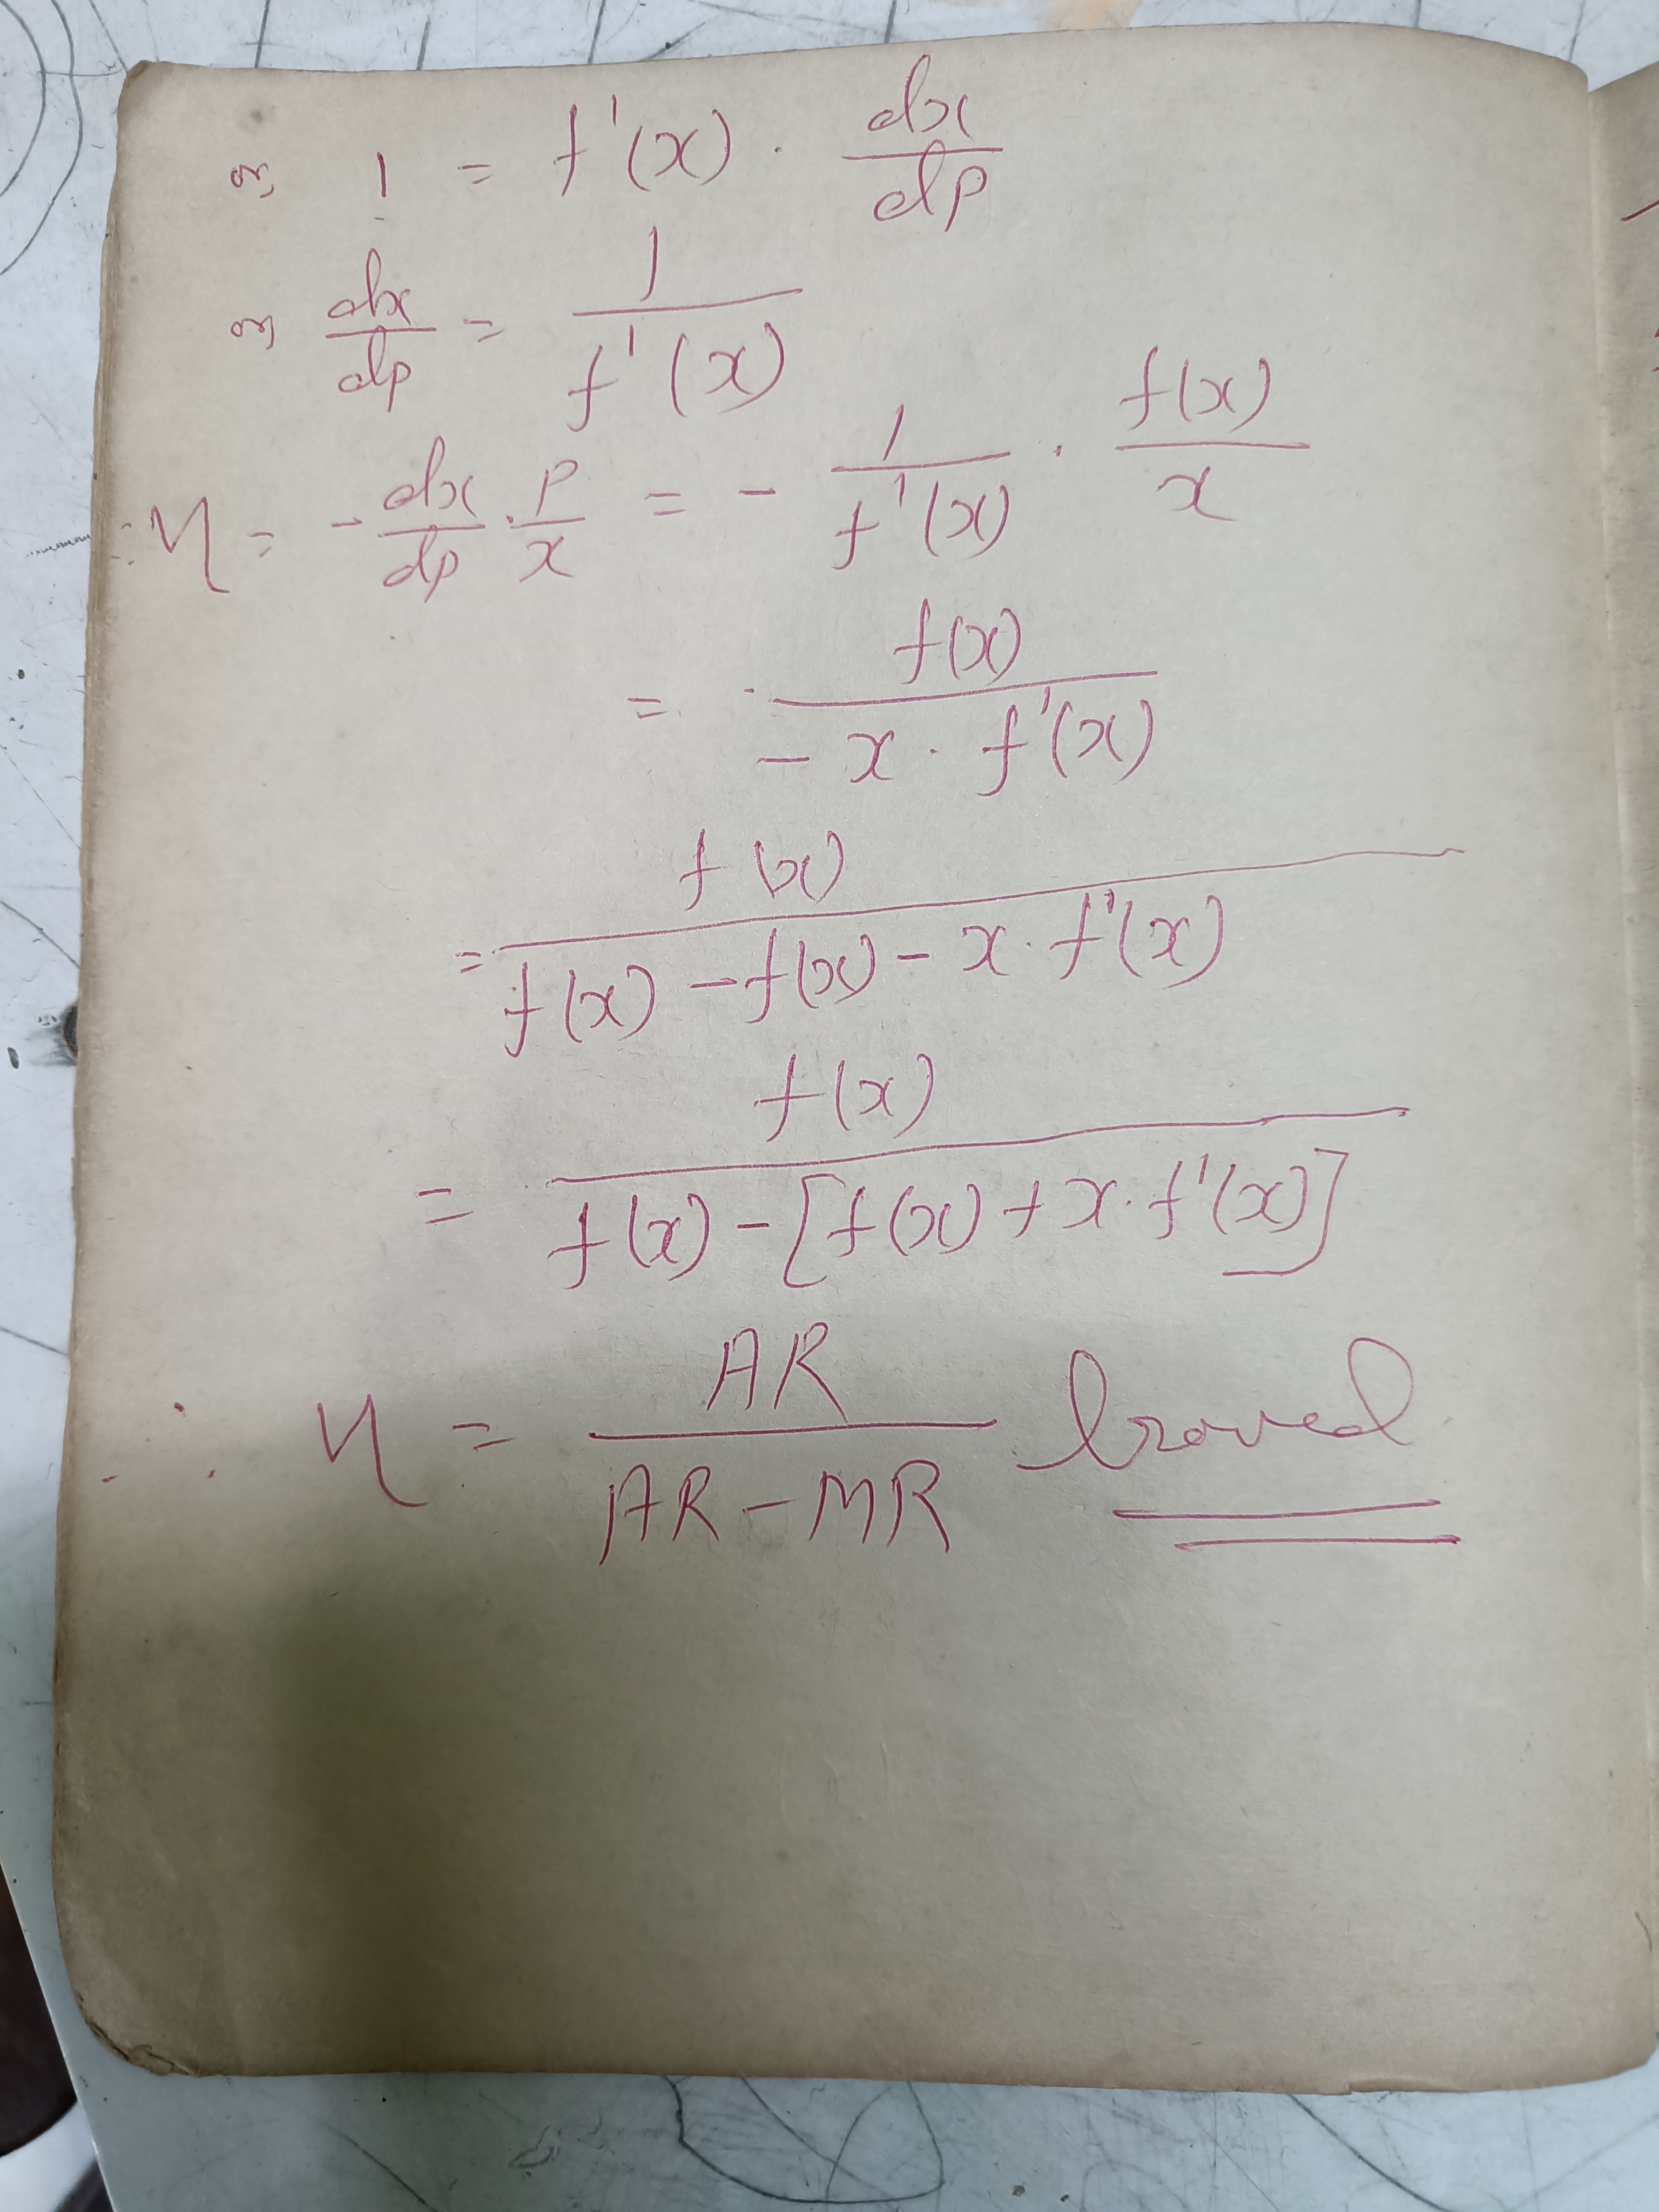 or 1 = f'(x) · dx/dp
or dx/dp = 1/f'(x)
∴ η = - dx/dp · p/x = - 1/f'(x) · f(x)/x
= f(x)/(- x · f'(x))
= f(x)/(f(x) - f(x) - x · f'(x))
= f(x)/(f(x) - [f(x) + x · f'(x)])
∴ η = AR/(AR - MR) Proved